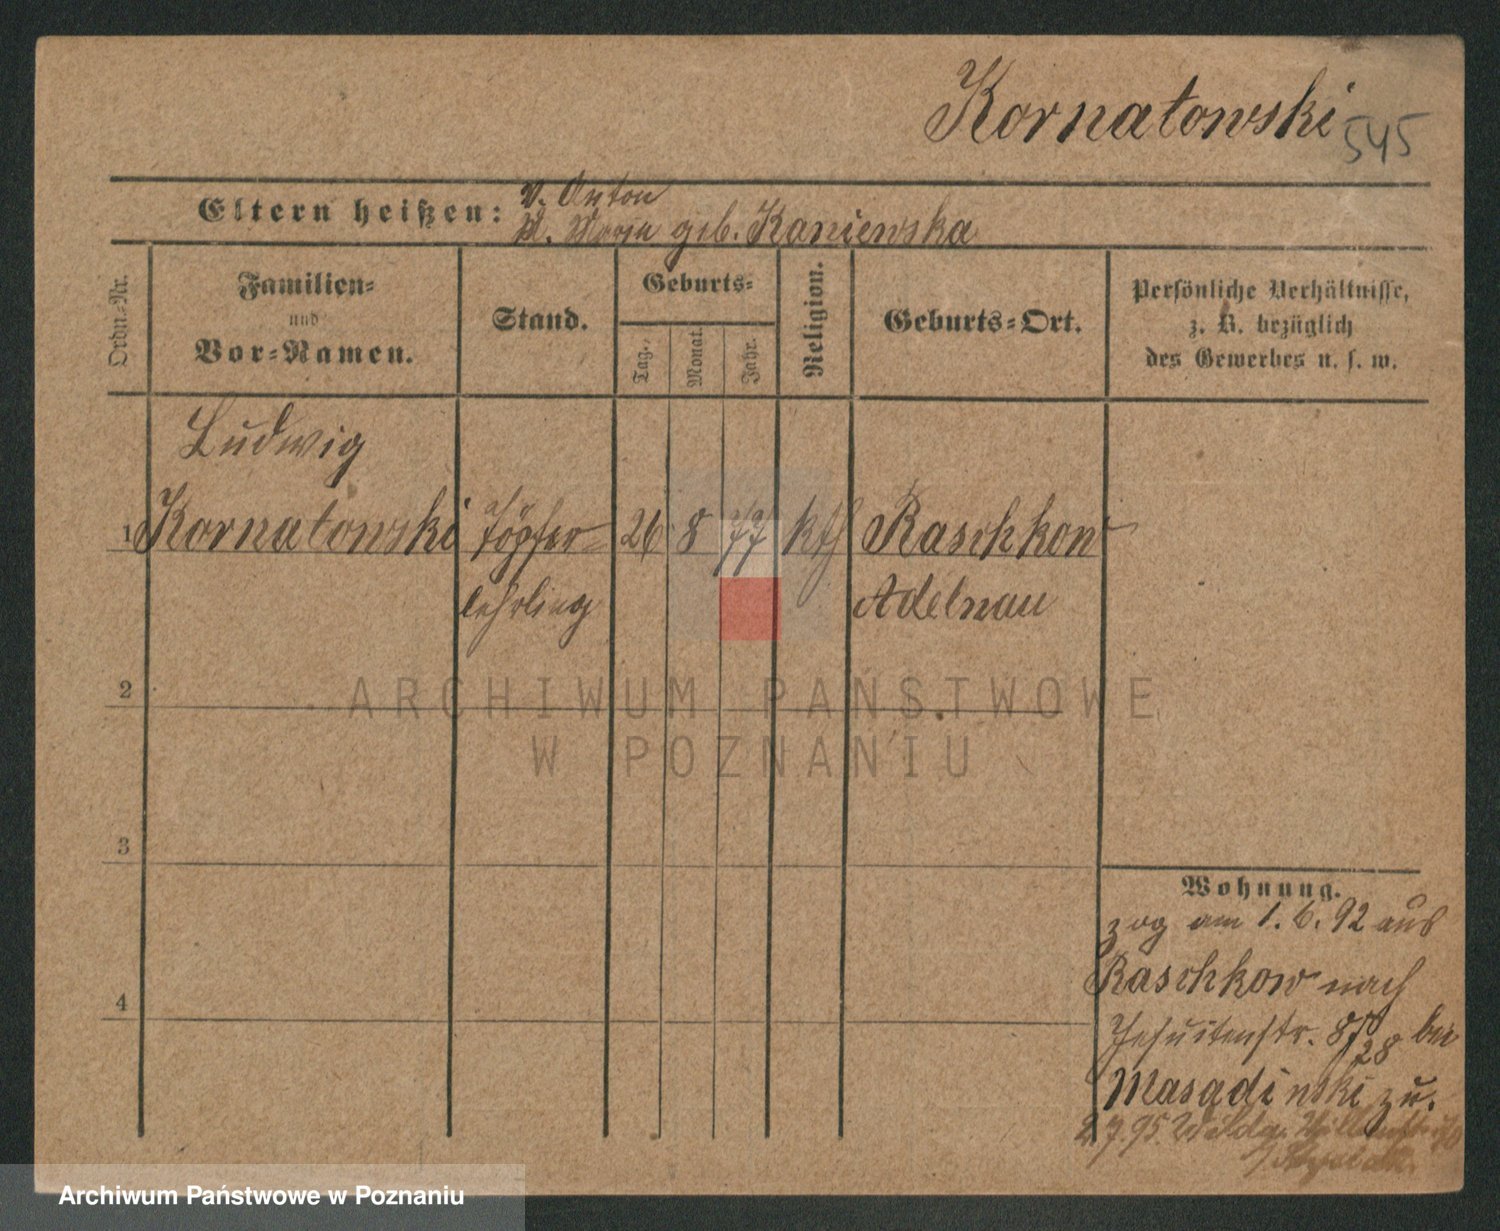 Kornatowski 545
Eltern heißen: V. Anton
M. Maria geb. Kaniewska
Ordn.-Nr.
Familien-
und
Vor-Namen.
Stand.
Geburts-
Tag.
Monat.
Jahr.
Religion.
Geburts-Ort.
Persönliche Verhältnisse,
z. B. bezüglich
des Gewerbes u. s. w.
Ludwig
1 Kornatowski Töpfer- 26 8 77 kth Raschkow
lehrling Adelnau
2
ARCHIWUM PAŃSTWOWE
W POZNANIU
3
Wohnung.
zog am 1. 6. 92 aus
Raschkow nach
4
Jesuitenstr. bei
Masadinski zu.
2.7.95
Archiwum Państwowe w Poznaniu